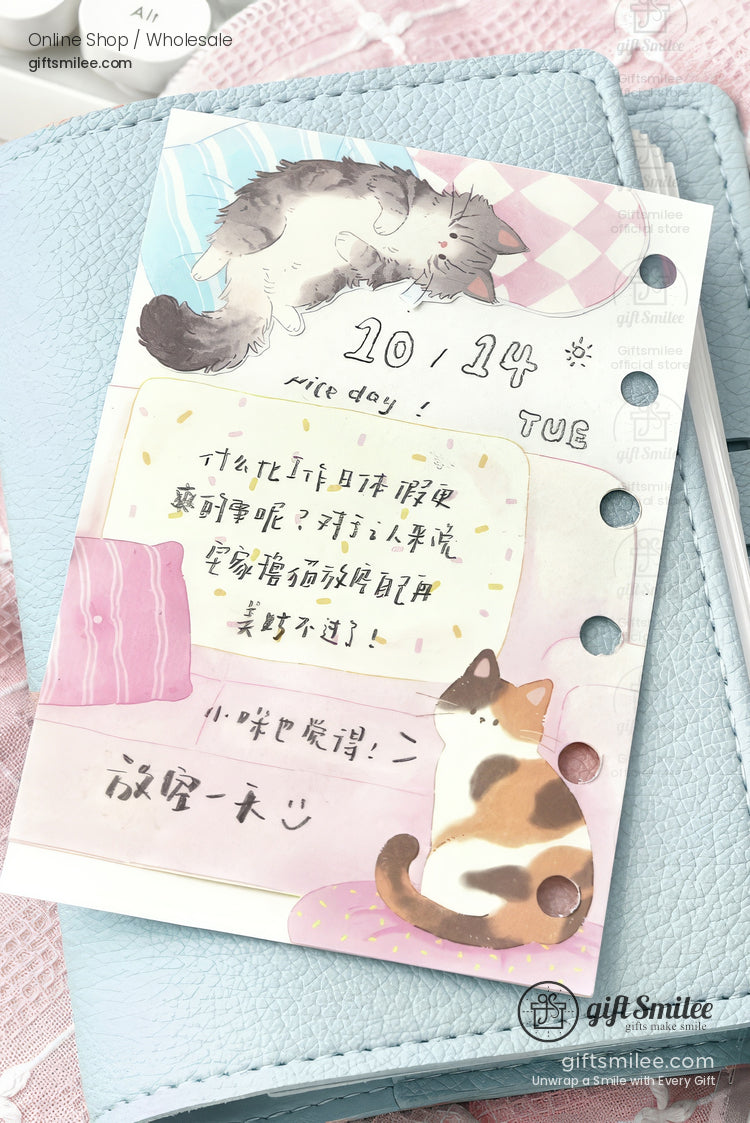 Alt
Online Shop / Wholesale
giftsmilee.com
giftSmilee
Giftsmilee
official store
Giftsmilee
official store
giftSmilee
Giftsmilee
official store
giftSmilee
10 / 14
Nice day !
TUE
什么比工作日休假更
爽的事呢？对于人来说
宅家撸猫放空自己再
美妙不过了！
小咪也觉得！
放空一天
giftSmilee
gifts make smile
giftsmilee.com
Unwrap a Smile with Every Gift